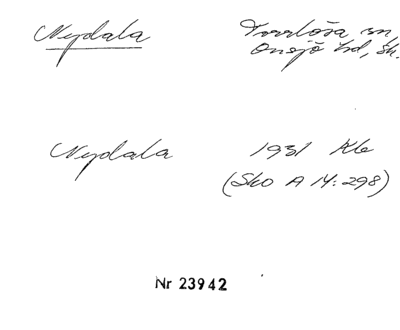 Nydala Torrlösa sn,
Onsjö hd, Sk.
Nydala 1931 Kle
(Sko A 14:298)
Nr 23942